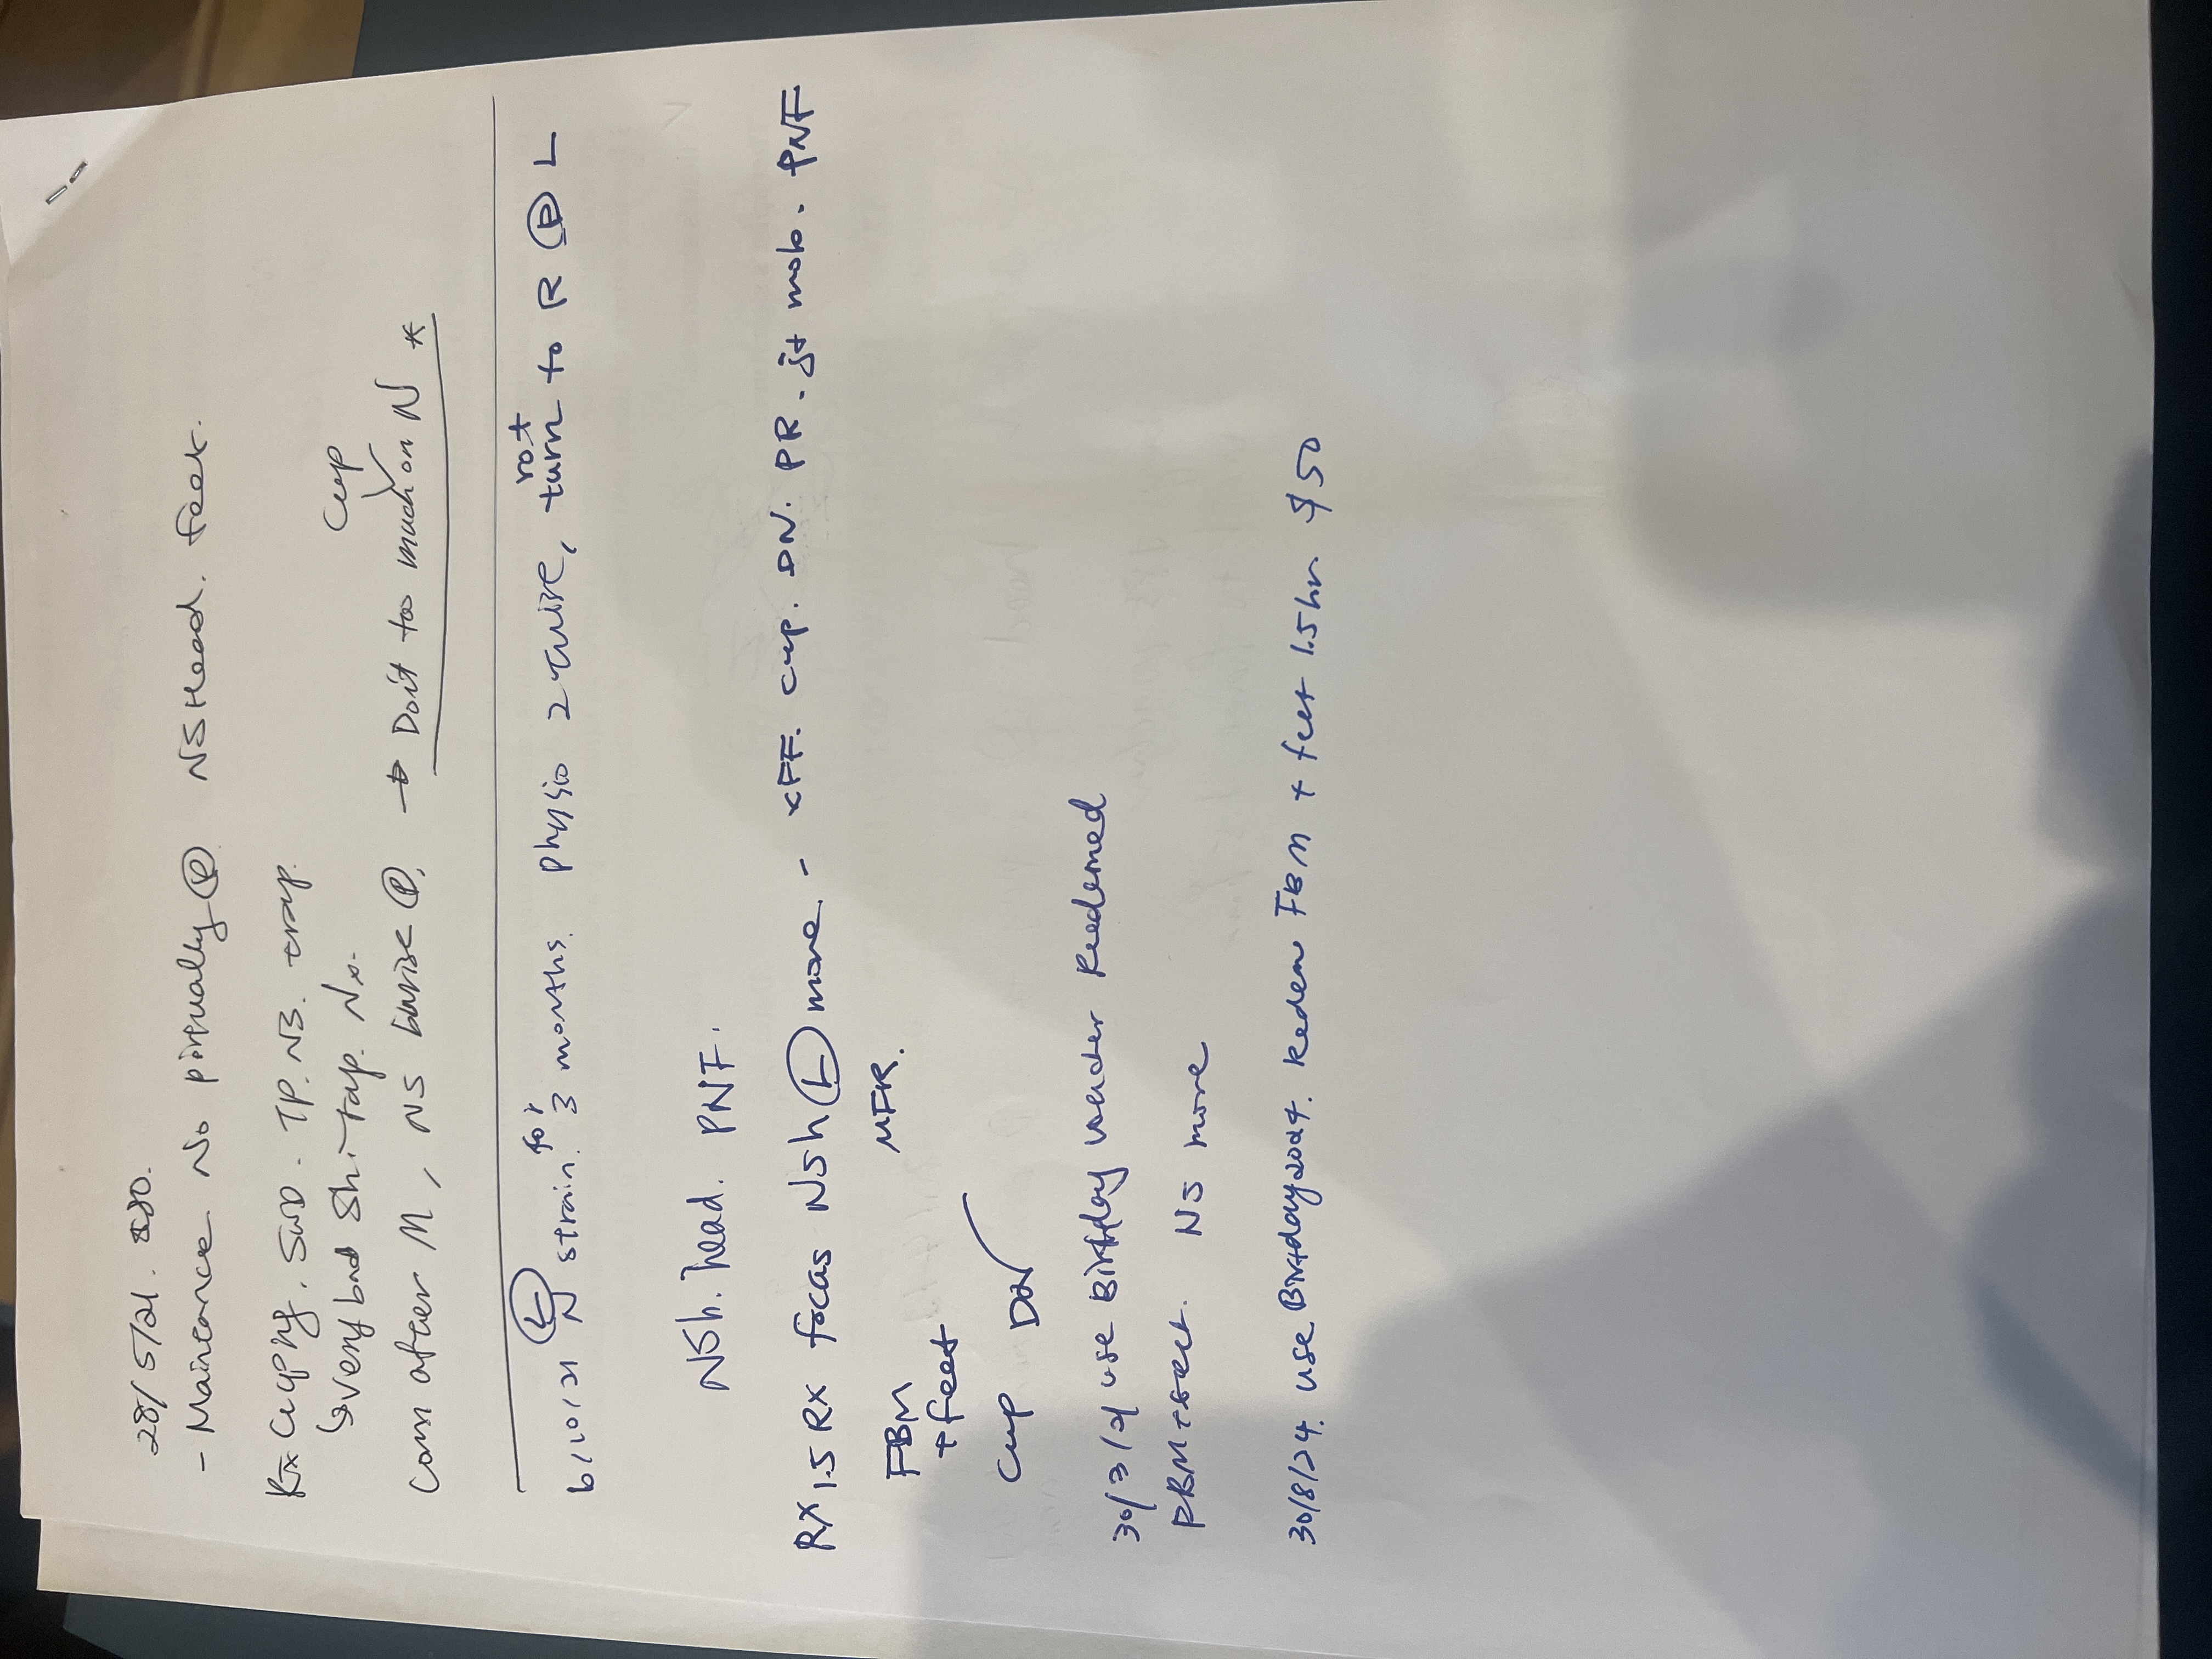 28/5/21.
- Maintance No pirtually Ⓟ. NS Head. feet.
Rx Cupping. SWD. TP. NB. trap.
very bad Sh. Tap. No.
Cup
Com after M, NS barise Ⓟ. → Do it too much on N *
for rot
6/10/21 Ⓛ N strain. 3 months. Physio 2 twice, turn to R Ⓟ L
NSh. head. PNF.
RX 1.5 RX focas NSh Ⓛ more. - XFF. cup. DN. PR. jt mob. PNF
FBM MFR.
+ feet
Cup DN
30/3/21 use Birthday voucher Reedemed
FBM + feet. NS more
30/8/24. use Birthday 2024. Redem FBM + feet 1.5hr. $50